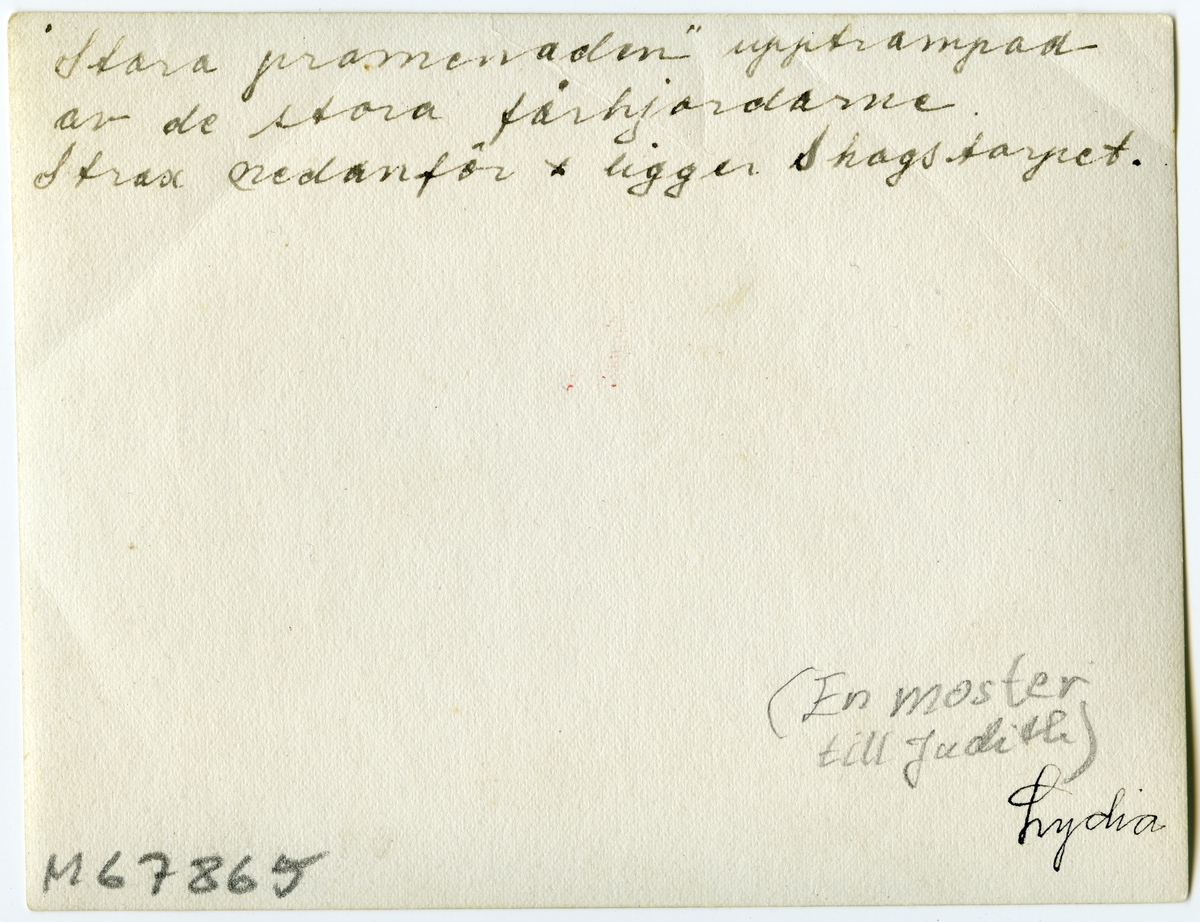 "Stora promenaden" upptrampad
av de stora fårhjordarne.
Strax nedanför x ligger Skogstorpet.
(En moster
till Judith)
Lydia
M67865